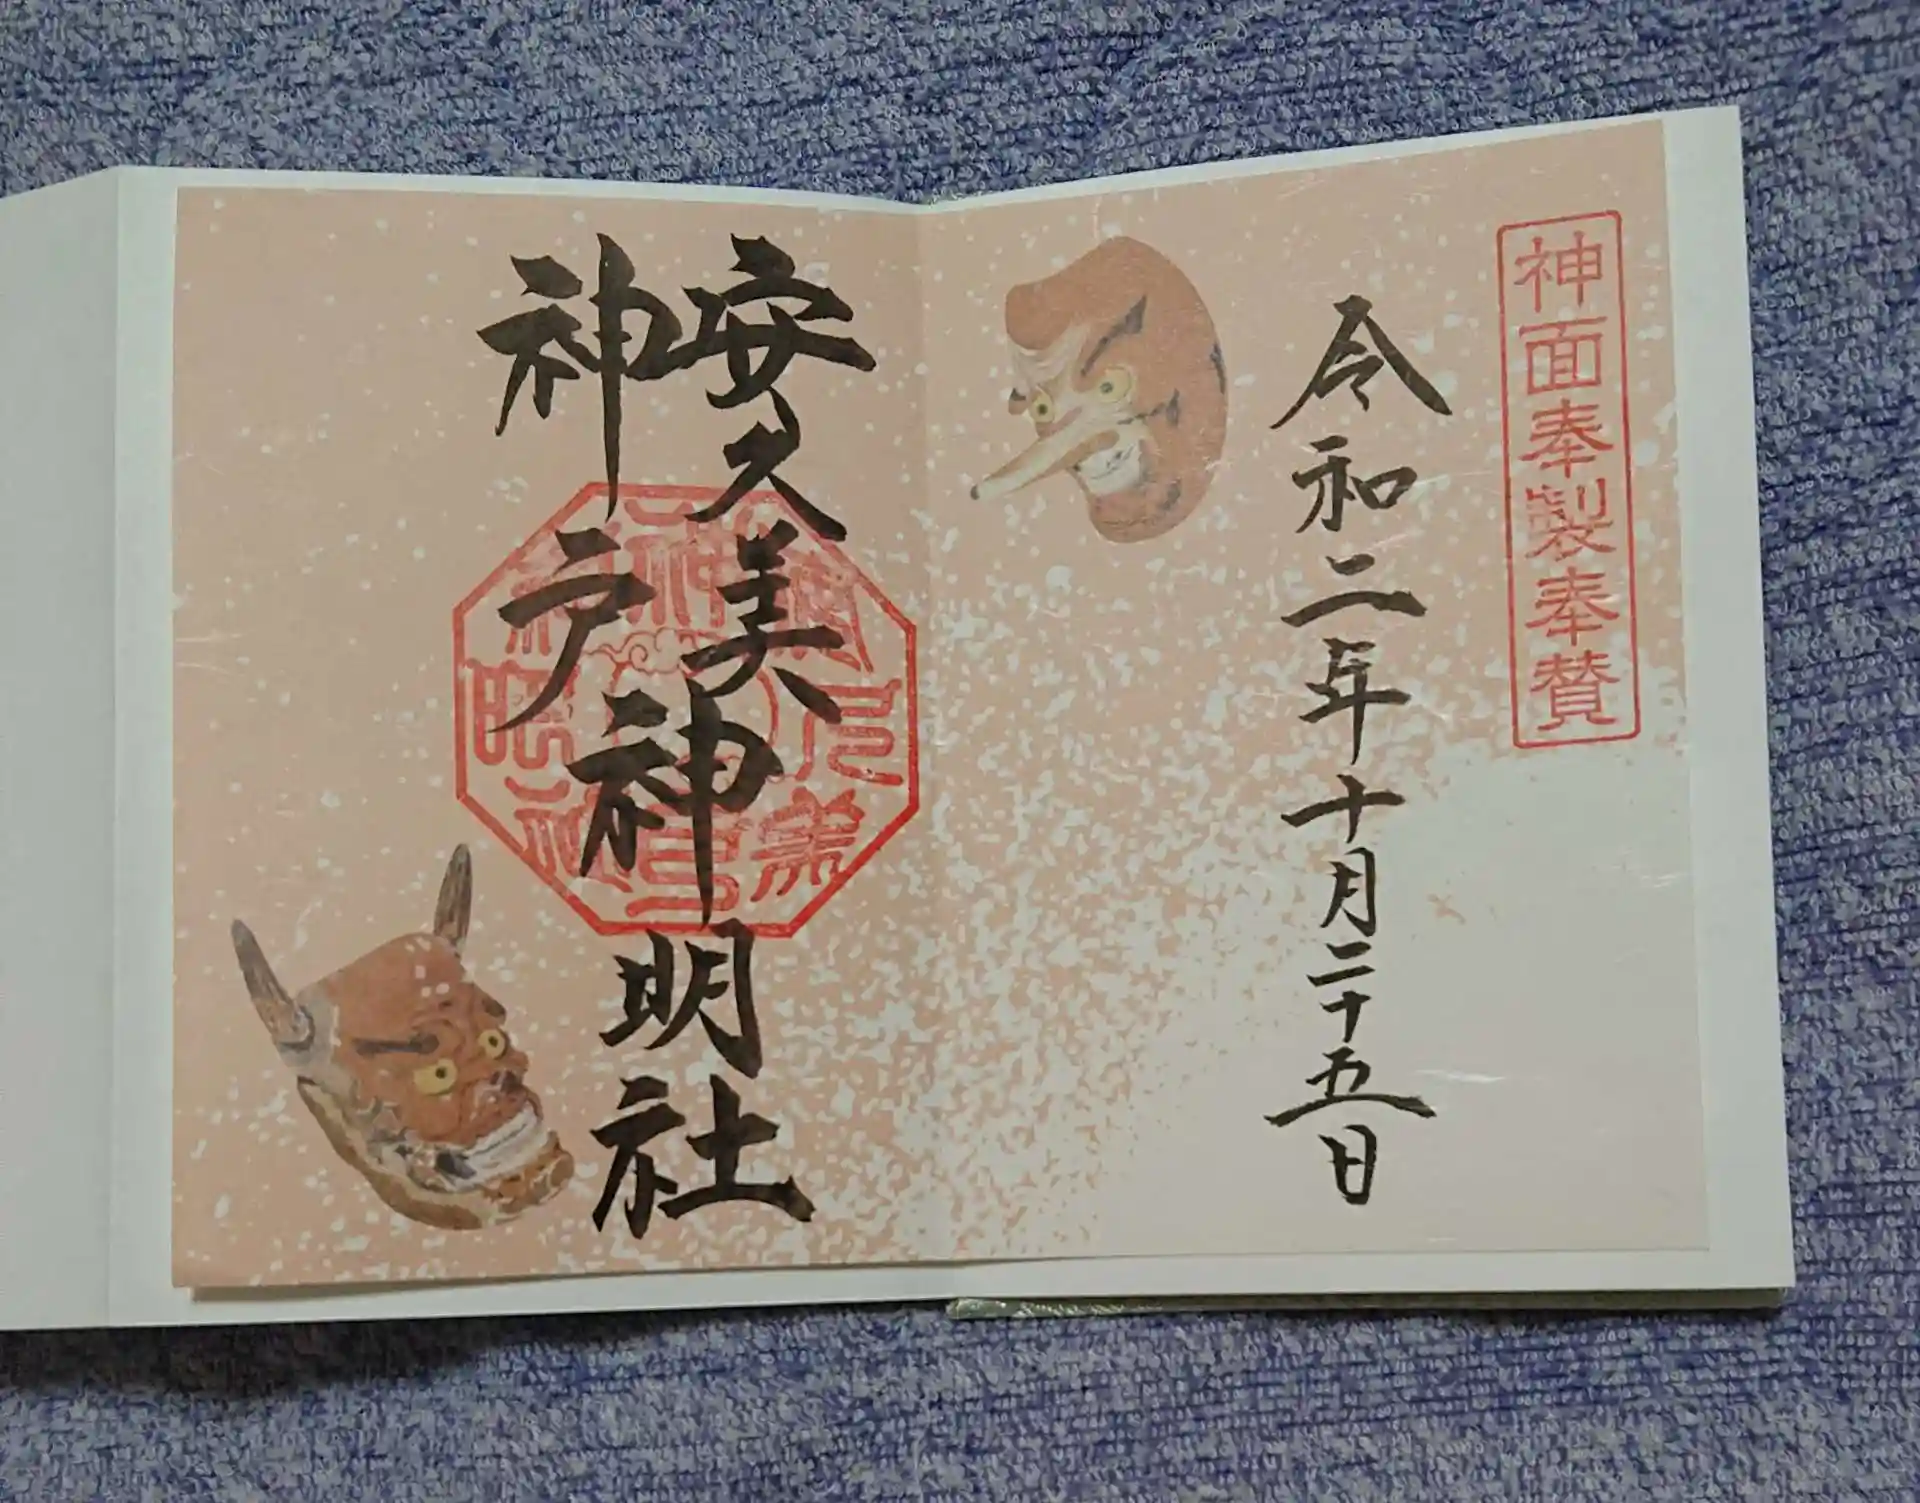 神面奉製奉賛
令和二年十月二十五日
安久美
神戸
神明社